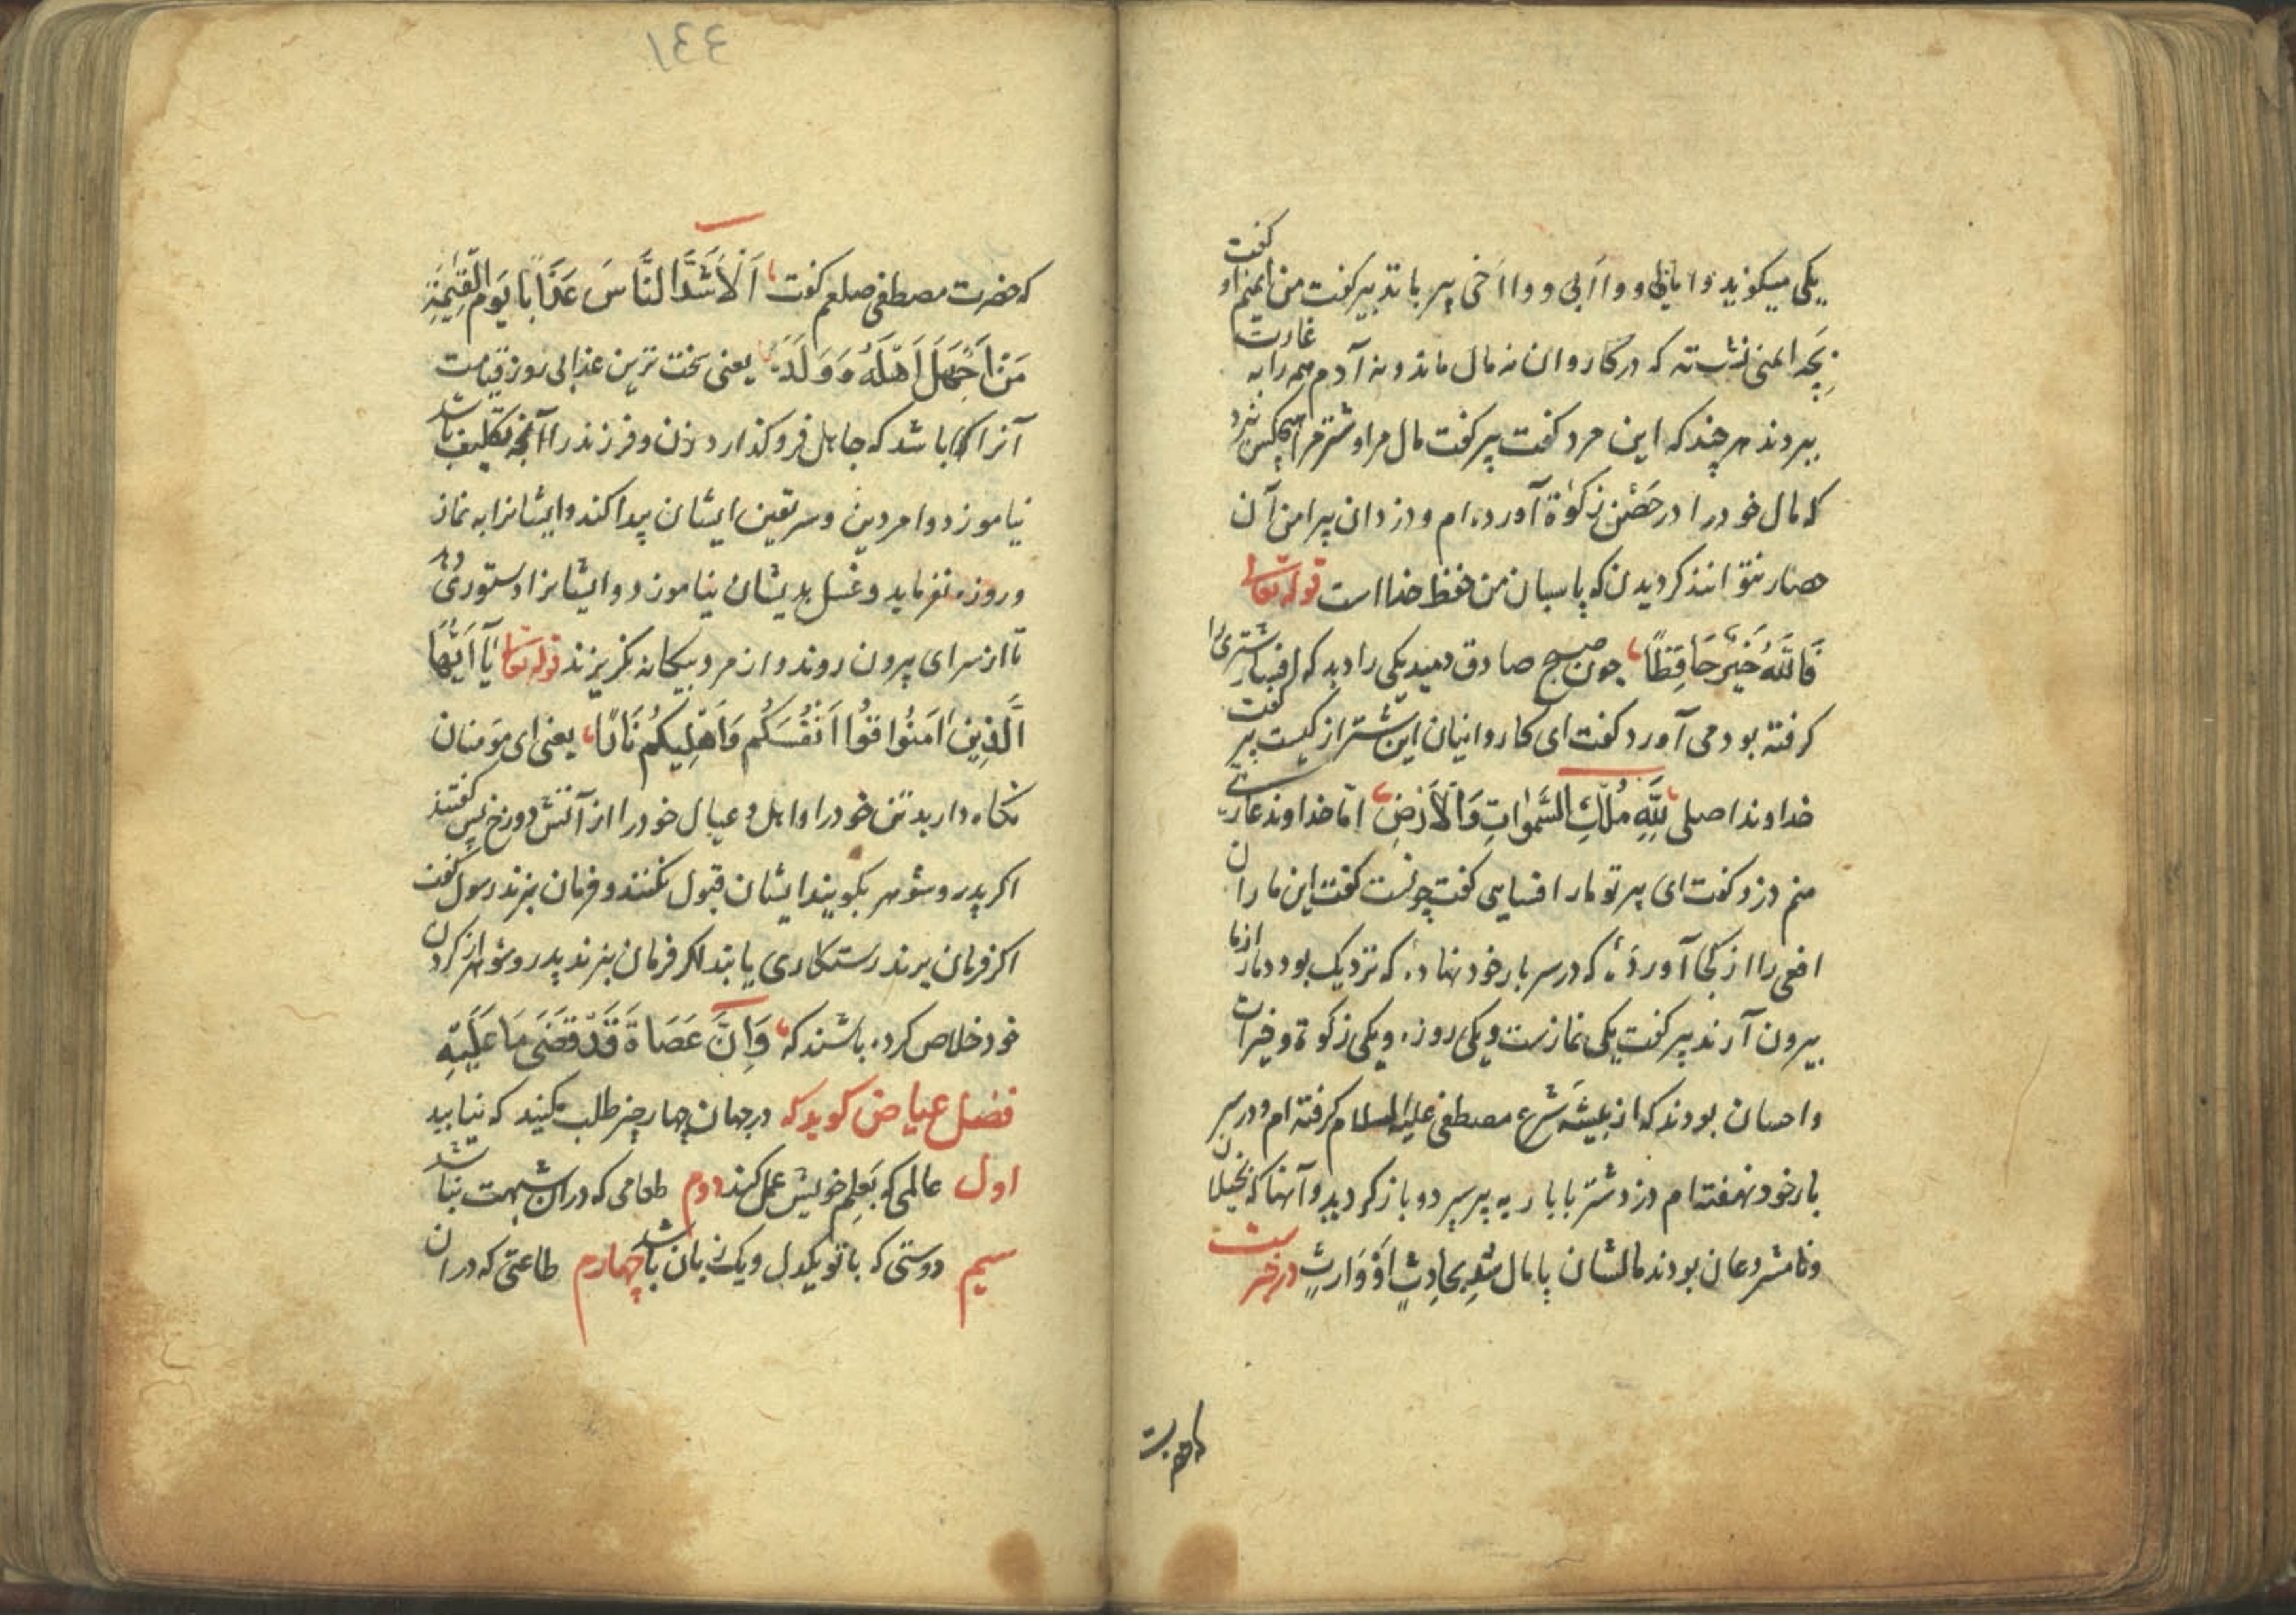 یکی میکوید وا بابی و وا ابی و وا اخی پیر با تدبیر کفت من ایمنم او کفت
بچه ایمنی نشسته که در کاروان نه مال ماند و نه آدم همه را به غارت
ببردند هر چند که این مرد کفت پیر کفت مال مرا و شتر مرا هیچکس نبرد
که مال خود را در حصن زکوة آورده ام و دزدان پیرامن آن
حصار نتوانند کردیدن که پاسبان من حفظ خدا است قوله تعالی
فَاللّٰهُ خَیْرٌ حَافِظًا چون صبح صادق دمید یکی را دید که افسار شتری را
کرفته بود می آورد کفت ای کاروانیان این شتر از کیست پیر کفت
خداوند اصلی لِلّٰهِ مُلْكِ السَّمٰوَاتِ وَالْاَرْضِ امّا خداوند عاریتی
منم دزد کفت ای پیر تو مار افسایی کفت چونست کفت این ماران
افعی را از کجا آوردهٔ که در سر بار خود نهاده که نزدیک بود دمار از ما
بیرون آرند پیر کفت یکی نمازست و یکی روزه و یکی زکوة و خیرات
و احسان بودند که از بیشه شرع مصطفی علیه السلام کرفته ام و در سر
بار خود نهفته ام دزد شتر با بار به پیر سپرد و باز کردید و آنها که بخیلان
و نامشروعان بودند مالشان پامال شد بِحادِثٍ اَوْ وَارِثٍ درخبرست
١٤٤
که حضرت مصطفی صلعم کفت اَلْاَشَدُّ النَّاسَ عَذَابًا یَوْمَ الْقِیٰمَةِ
مَنْ اَجْهَلَ اَهْلَهُ وَ وَلَدَهُ یعنی سخت ترین عذابی روز قیامت
آنرا باشد که جاهل فرو کذارد زن و فرزند را آنچه تکلیف باشد
نیاموزد و امر دین و سر یقین ایشان پیدا کند و ایشانرا به نماز
و روزه نفرماید و غسل بدیشان نیاموزد و ایشانرا دستوری دهد
تا از سرای بیرون روند و از مرد بیکانه نکریزند قوله تعالی یَآ اَیُّهَا
الَّذِینَ اٰمَنُوا قُوا اَنْفُسَکُمْ وَاَهْلِیکُمْ نَارًا یعنی ای مؤمنان
نکاه دارید تن خود را و اهل و عیال خود را از آتش دوزخ پس کفتند
اکر پدر و شوهر بکویند ایشان قبول نکنند و فرمان نبرند رسول کفت
اکر فرمان برند رستکاری یابند اکر فرمان نبرند پدر و شوهر از کردن
خود خلاص کرده باشند که وَاِنَّ عَصَاهُ قَدْ قَضَی مَا عَلَیْهِ
فضیل عیاض کوید که در جهان چهار چیز طلب مکنید که نیابید
اول عالمی که بعلم خویش عمل کند دوم طعامی که در آن شبهت نباشد
سیم دوستی که با تو یکدل و یک زبان باشد چهارم طاعتی که در ان